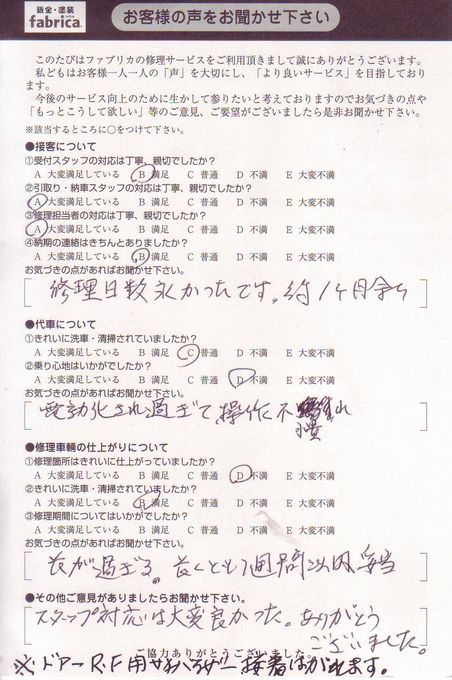 鈑金・塗装
fabrica.
お客様の声をお聞かせ下さい
このたびはファブリカの修理サービスをご利用頂きまして誠にありがとうございます。
私どもはお客様一人一人の「声」を大切にし、「より良いサービス」を目指しており
ます。
今後のサービス向上のために生かして参りたいと考えておりますのでお気づきの点や
「もっとこうして欲しい」等のご意見、ご要望がございましたら是非お聞かせ下さい。
※該当するところに○をつけて下さい。
●接客について
①受付スタッフの対応は丁寧、親切でしたか？
A 大変満足している B 満足 C 普通 D 不満 E 大変不満
②引取り・納車スタッフの対応は丁寧、親切でしたか？
A 大変満足している B 満足 C 普通 D 不満 E 大変不満
③修理担当者の対応は丁寧、親切でしたか？
A 大変満足している B 満足 C 普通 D 不満 E 大変不満
④納期の連絡はきちんとありましたか？
A 大変満足している B 満足 C 普通 D 不満 E 大変不満
お気づきの点があればお聞かせ下さい。
修理日数永かったです。約1ヶ月余り
●代車について
①きれいに洗車・清掃されていましたか？
A 大変満足している B 満足 C 普通 D 不満 E 大変不満
②乗り心地はいかがでしたか？
A 大変満足している B 満足 C 普通 D 不満 E 大変不満
お気づきの点があればお聞かせ下さい
電動化され過ぎて、操作不慣れ
●修理車輌の仕上がりについて
①修理箇所はきれいに仕上がっていましたか？
A 大変満足している B 満足 C 普通 D 不満 E 大変不満
②きれいに洗車・清掃されていましたか？
A 大変満足している B 満足 C 普通 D 不満 E 大変不満
③修理期間についてはいかがでしたか？
A 大変満足している B 満足 C 普通 D 不満 E 大変不満
お気づきの点があればお聞かせ下さい。
長が過ぎる。長くとも1週間以内妥当
●その他ご意見がありましたらお聞かせ下さい。
スタッフ対応は大変良かった。ありがとう
ございました。
ご協力ありがとうございました。
※ドアーR.F用サイバイザー接着はがれます。